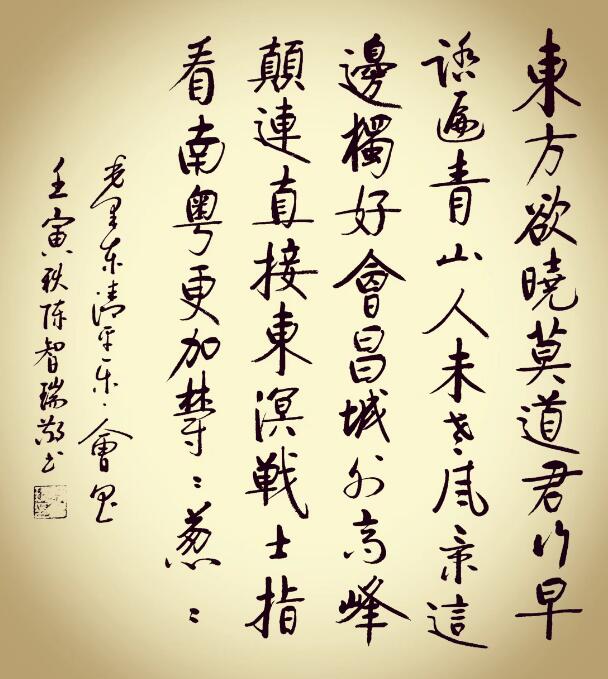 東方欲曉莫道君行早
踏遍青山人未老風景這
邊獨好會昌城外高峰
顛連直接東溟戦士指
看南粤更加鬱〻葱〻
毛澤东清平乐·會昌
壬寅秋陳智瑞敬书